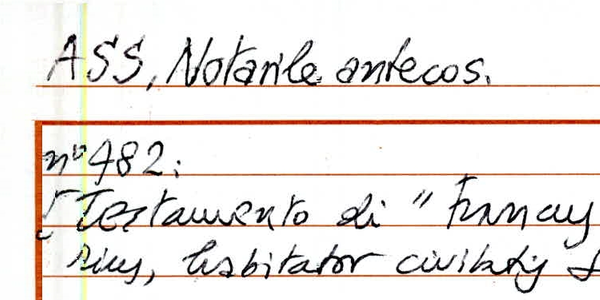 ASS, Notarile antecos.
n° 482:
[Testamento di "
habitator civitatis